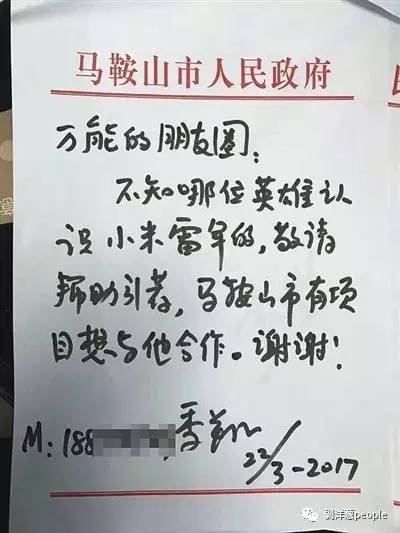 马鞍山市人民政府
万能的朋友圈:
不知哪位英雄认
识小米雷军的,敬请
帮助引荐,马鞍山市有项
目想与他合作。谢谢!
M:188 季翔
22/3-2017
剥洋葱people